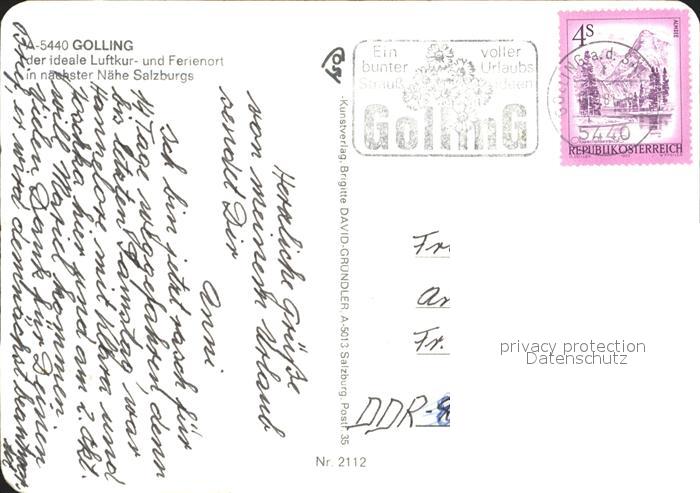 A-5440 GOLLING
der ideale Luftkur- und Ferienort
in nächster Nähe Salzburgs
Herzliche Grüße
von meinem Urlaub
sendet Dir
Anni
Ich bin jetzt rasch für
14 Tage weggefahren, denn
bis letzten Samstag war
Hannelore mit Klara und
hier und am 2. Okt.
will Mariel kommen.
Vielen Dank für Deinen
Brief, er wird demnächst beantwor-
tet.
Kunstverlag, Brigitte DAVID-GRUNDLER, A-5013 Salzburg, Postf. 35
Nr. 2112
Ein voller
bunter Urlaubs
Strauß ideen
Golling
GOLLING a.d.
5440
4 S
ALMSEE
REPUBLIK ÖSTERREICH
Fr
An
Fr.
DDR-
privacy protection
Datenschutz